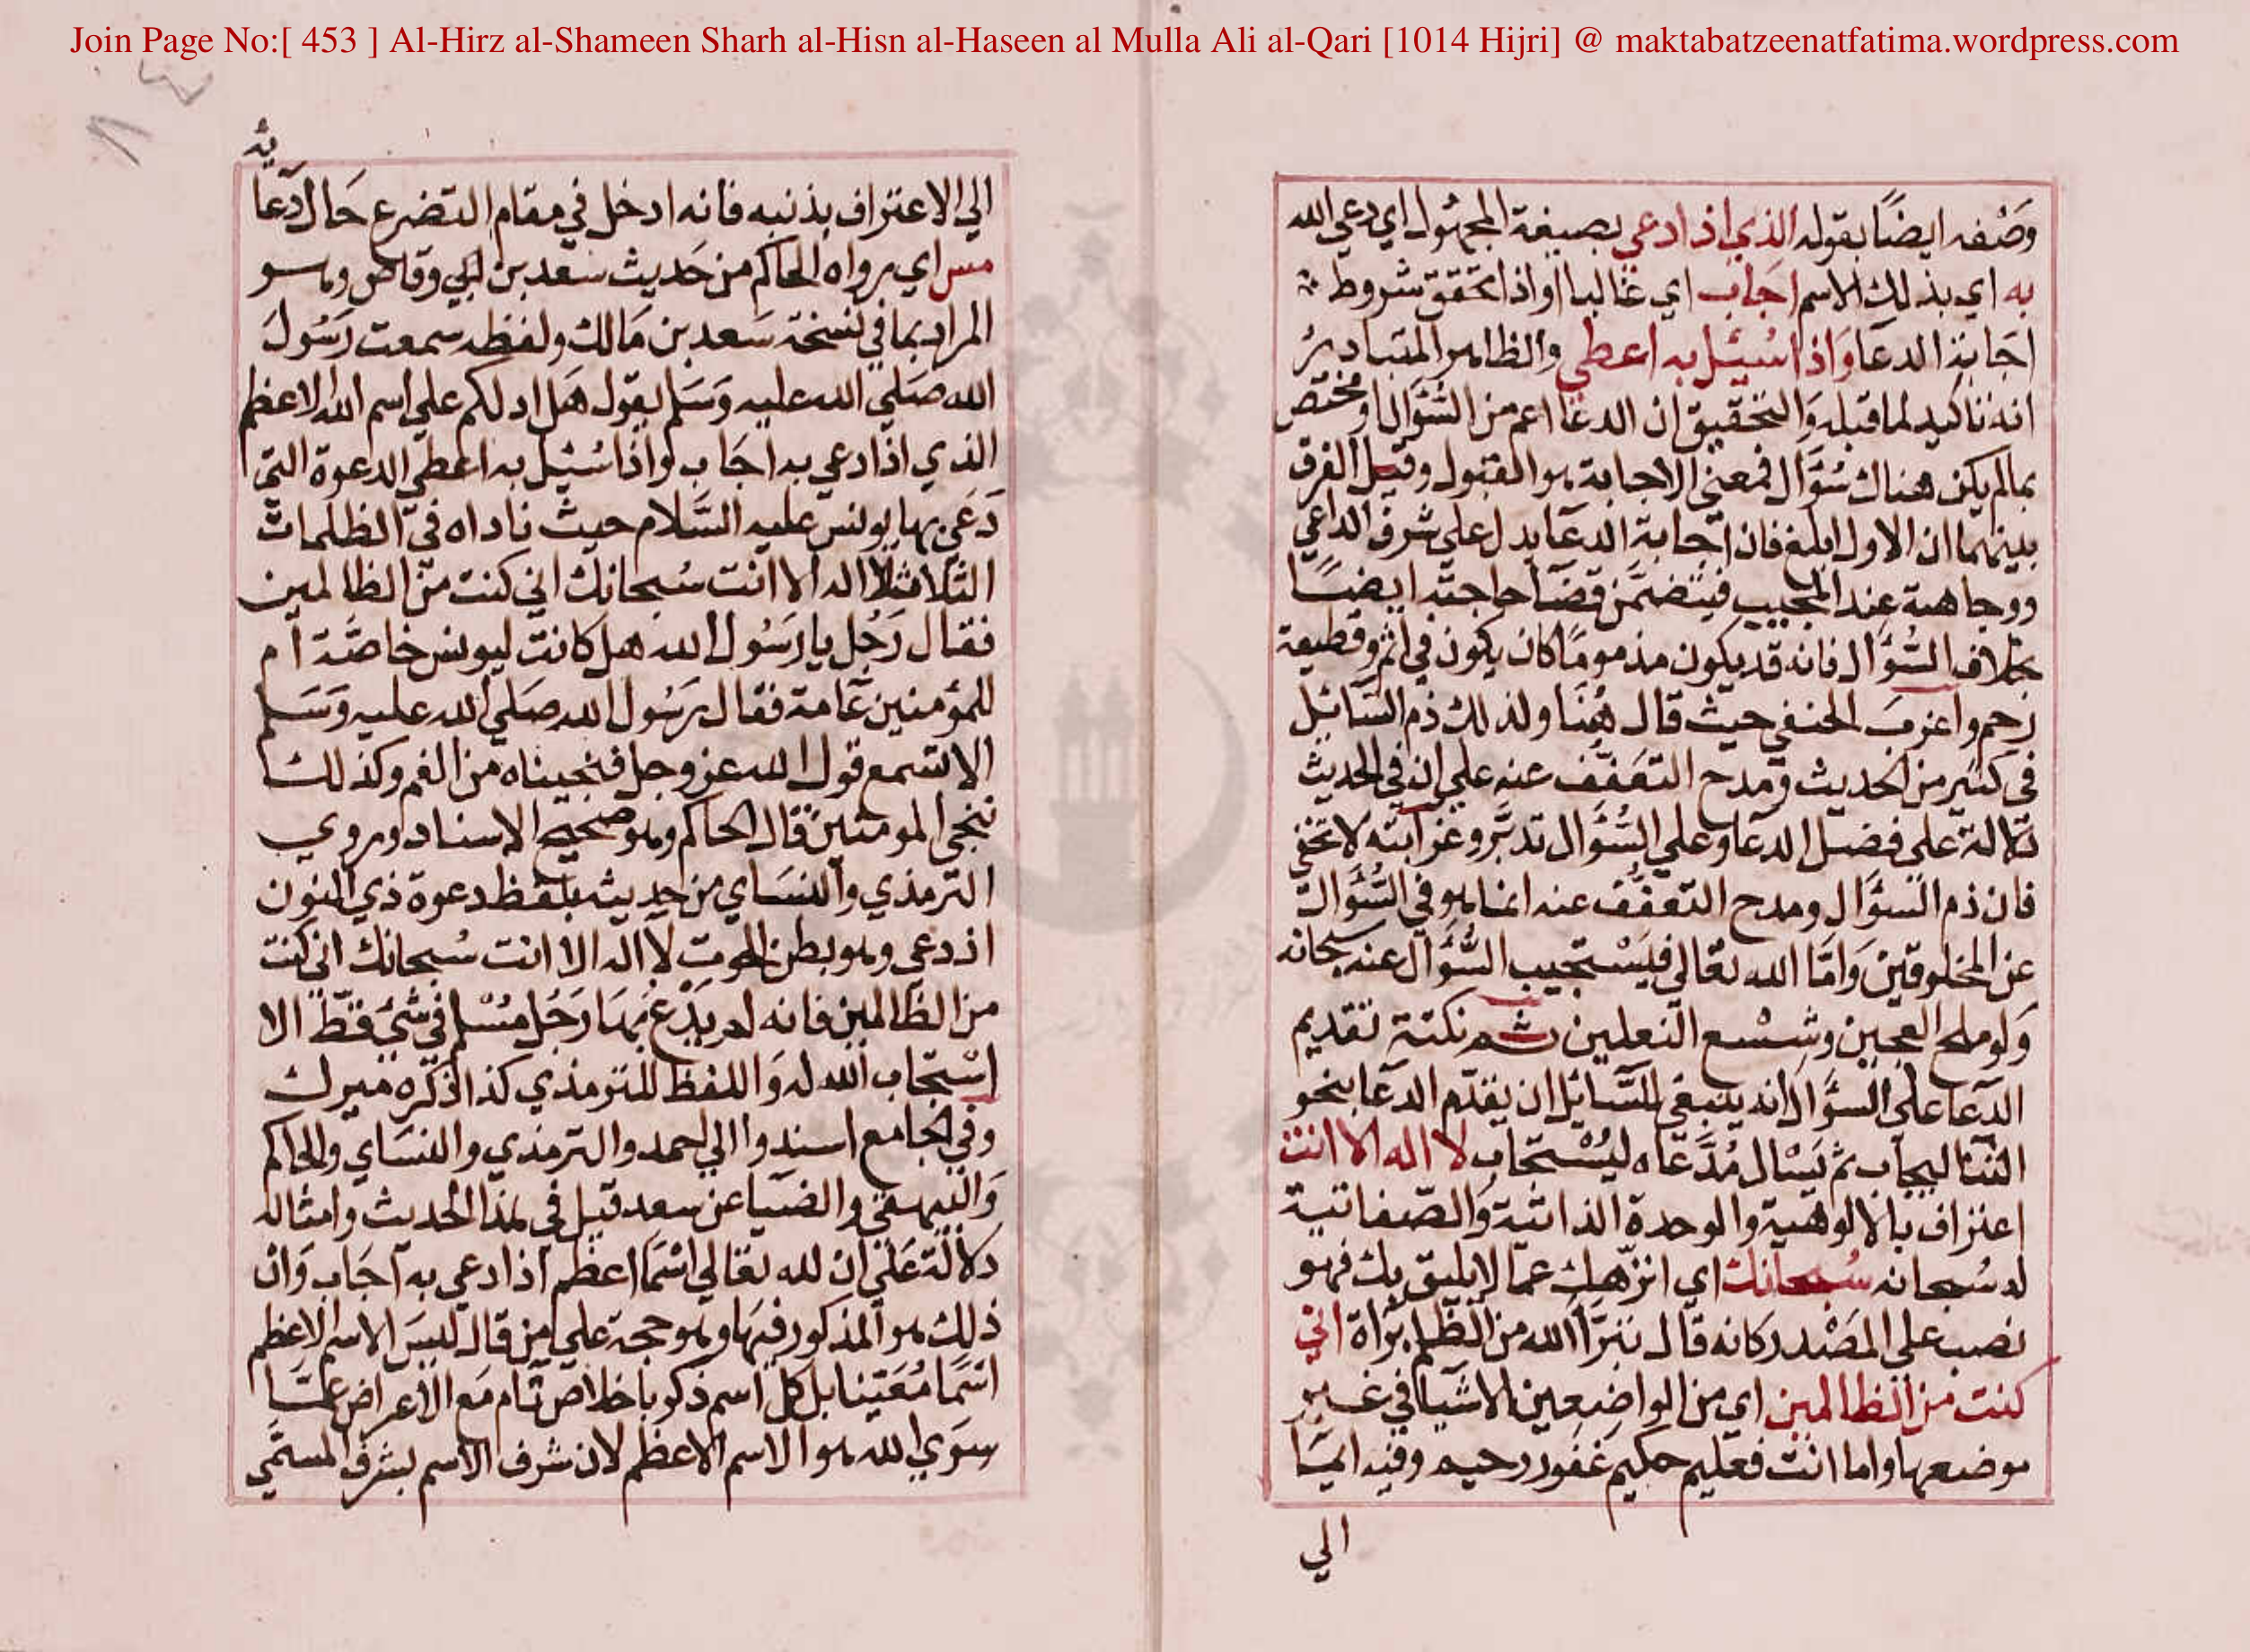 Join Page No:[ 453 ] Al-Hirz al-Shameen Sharh al-Hisn al-Haseen al Mulla Ali al-Qari [1014 Hijri] @ maktabatzeenatfatima.wordpress.com
وصفه ايضًا بقوله الذي اذا دعي بصيغة المجهول اي دعي الله
به اي بذلك الاسم اجاب اي غالبا او اذا تحقق شروط
اجابة الدعا واذا سئل به اعطي والظاهر المتبادر
انه تاكيد لما قبله والتحقيق ان الدعا اعم من السؤال او مختص
بما لم يكن هناك سؤال فمعني الاجابة هو القبول وقيل الفرق
بينهما ان الاول ابلغ فان اجابة الدعا يدل علي شرف الداعي
ووجاهته عند المجيب فيتضمن قضا حاجته ايضًا
بخلاف السؤال فانه قد يكون مذموما كان يكون في اثم وقطيعة
رحم واغرب الحنفي حيث قال هنا ولذلك ذم السائل
في كثير من الحديث ومدح التعفف عنه علي ان في الحديث
دلالة علي فضل الدعا وعلي السؤال تدبر وغرابته لا تخفي
فان ذم السؤال ومدح التعفف عنه انما هو في السؤال
عن المخلوقين واما الله تعالي فيستجيب السؤال عنه سبحانه
ولو ملح العجين وشسع النعلين ثم نكتة تقديم
الدعا علي السؤال انه ينبغي للسائل ان يقدم الدعا بنحو
الثنا ليجاب ثم يسال مدعاه ليستجاب لا اله الا انت
اعتراف بالالوهية والوحدة الذاتية والصفاتية
له سبحانه سبحانك اي انزهك عما لا يليق بك فهو
نصب علي المصدر كانه قال نتبرأ الله من الظلم براة اني
كنت من الظالمين اي من الواضعين الاشيا في غير
موضعها واما انت فعليم حكيم غفور رحيم وفيه ايما
الي
الي الاعتراف بذنبه فانه ادخل في مقام التضرع حال دعا
مس اي رواه الحاكم من حديث سعد بن ابي وقاص وهو
المراد بما في نسخة سعد بن مالك ولفظه سمعت رسول
الله صلي الله عليه وسلم يقول هل ادلكم علي اسم الله الاعظم
الذي اذا دعي به اجاب واذا سئل به اعطي الدعوة التي
دعي بها يونس عليه السلام حيث ناداه في الظلمات
الثلاث لا اله الا انت سبحانك اني كنت من الظالمين
فقال رجل يا رسول الله هل كانت ليونس خاصة ام
للمؤمنين عامة فقال رسول الله صلي الله عليه وسلم
الا تسمع قول الله عز وجل فنجيناه من الغم وكذلك
ننجي المومنين قال الحاكم وهو صحيح الاسناد وروي
الترمذي والنساي من حديثه بلفظ دعوة ذي النون
اذ دعي وهو بطن الحوت لا اله الا انت سبحانك اني كنت
من الظالمين فانه لم يدع بها رجل مسلم في شئ قط الا
استجاب الله له واللفظ للترمذي كذا ذكره ميرك
وفي الجامع اسندوا الي احمد والترمذي والنساي والحاكم
والبيهقي والضيا عن سعد قيل في هذا الحديث وامثاله
دلالة علي ان لله تعالي اسما اعظم اذا دعي به اجاب وان
ذلك هو المذكور فيها وهو حجة علي من قال ليس الاسم الاعظم
اسما معينا بل كل اسم ذكر باخلاص تام مع الاعراض عما
سوي الله هو الاسم الاعظم لان شرف الاسم بشرف المسمي